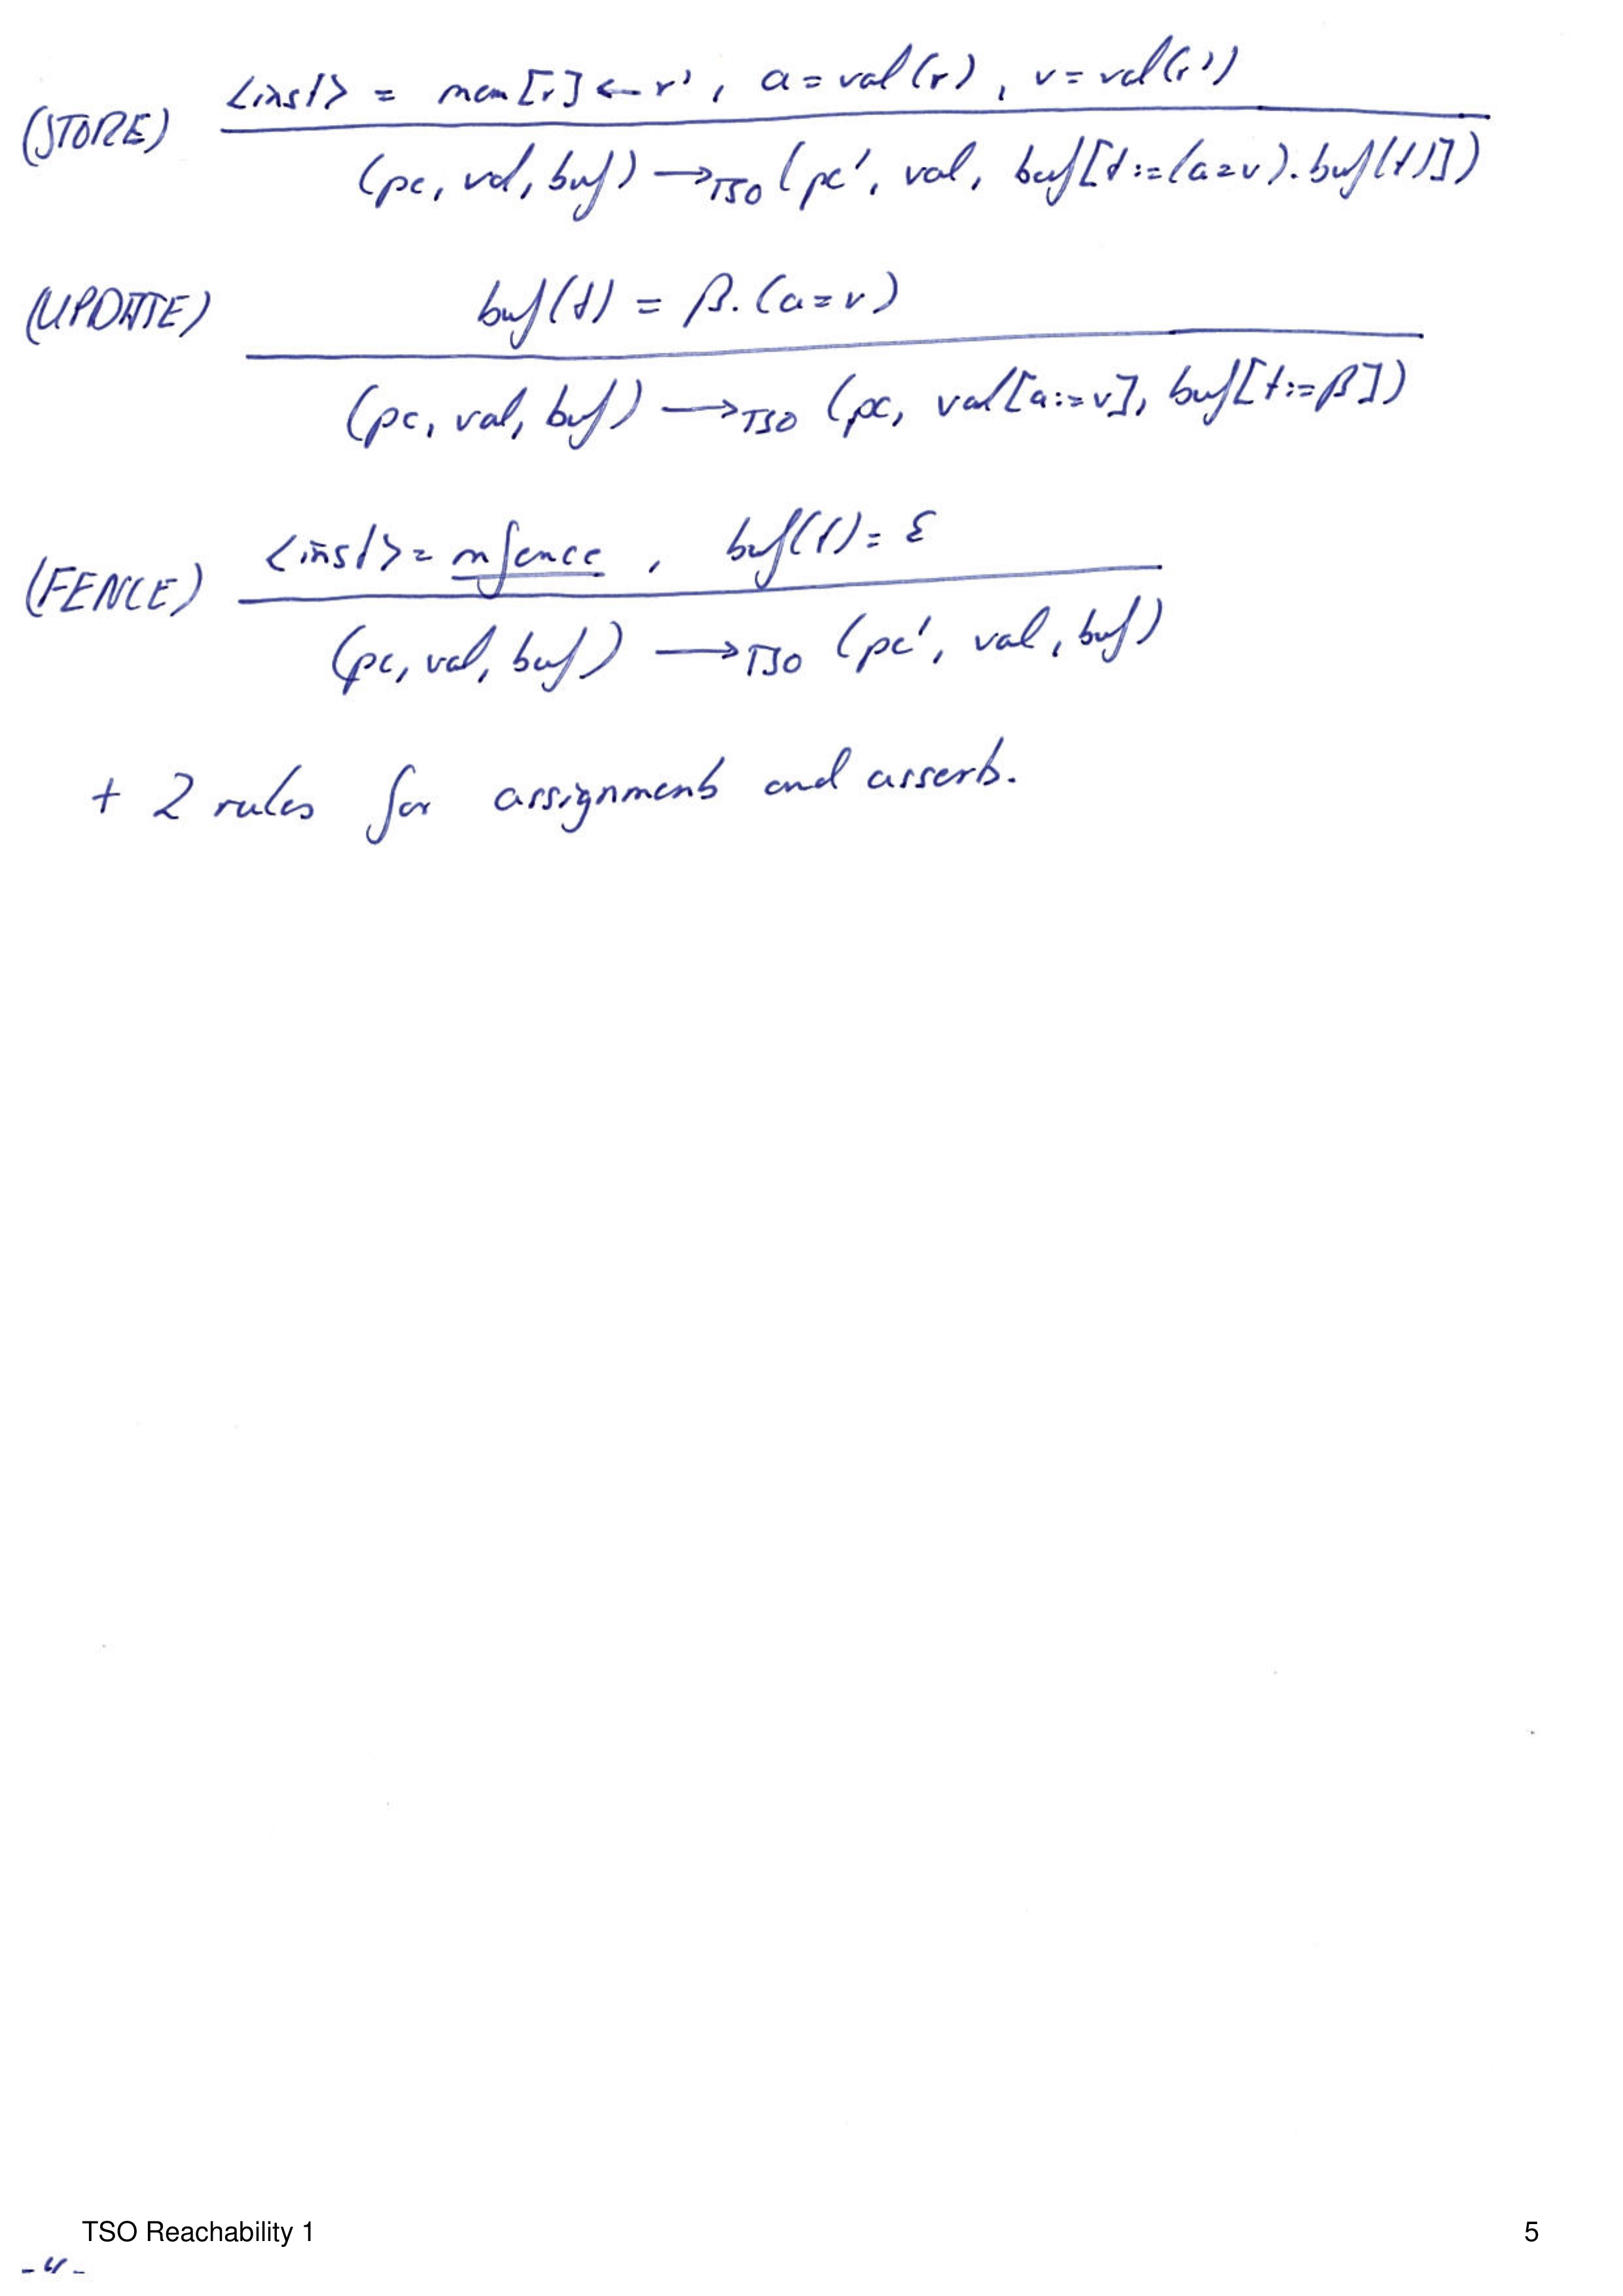 (STORE) <inst> = mem[r] ← r', a = val(r), v = val(r')
(pc, val, buf) →TSO (pc', val, buf[t:=(a=v).buf(t)])
(UPDATE) buf(t) = β.(a=v)
(pc, val, buf) →TSO (pc, val[a:=v], buf[t:=β])
(FENCE) <inst> = mfence, buf(t) = ε
(pc, val, buf) →TSO (pc', val, buf)
+ 2 rules for assignments and asserts.
TSO Reachability 1 5
-4-